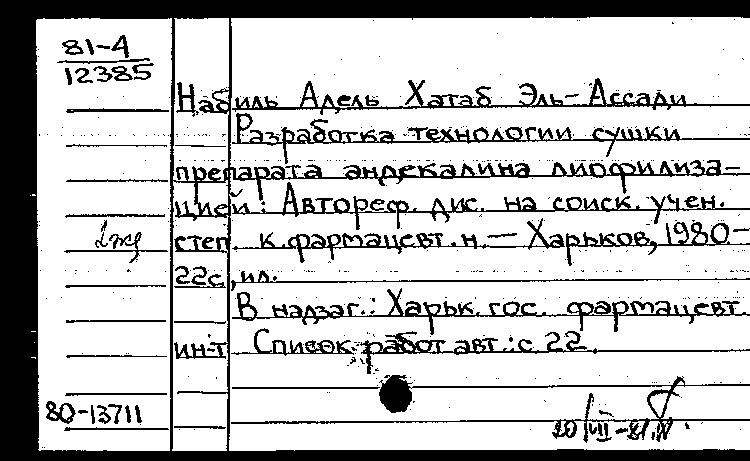 81-4
12385
Набиль Адель Хатаб Эль-Ассади
Разработка технологии сушки
препарата андекалина лиофилиза-
цией: Автореф. дис. на соиск. учен.
степ. к. фармацевт. н. — Харьков, 1980-
22с., ил.
В надзаг.: Харьк. гос. фармацевт
ин-т Список работ авт.: с. 22.
80-13711